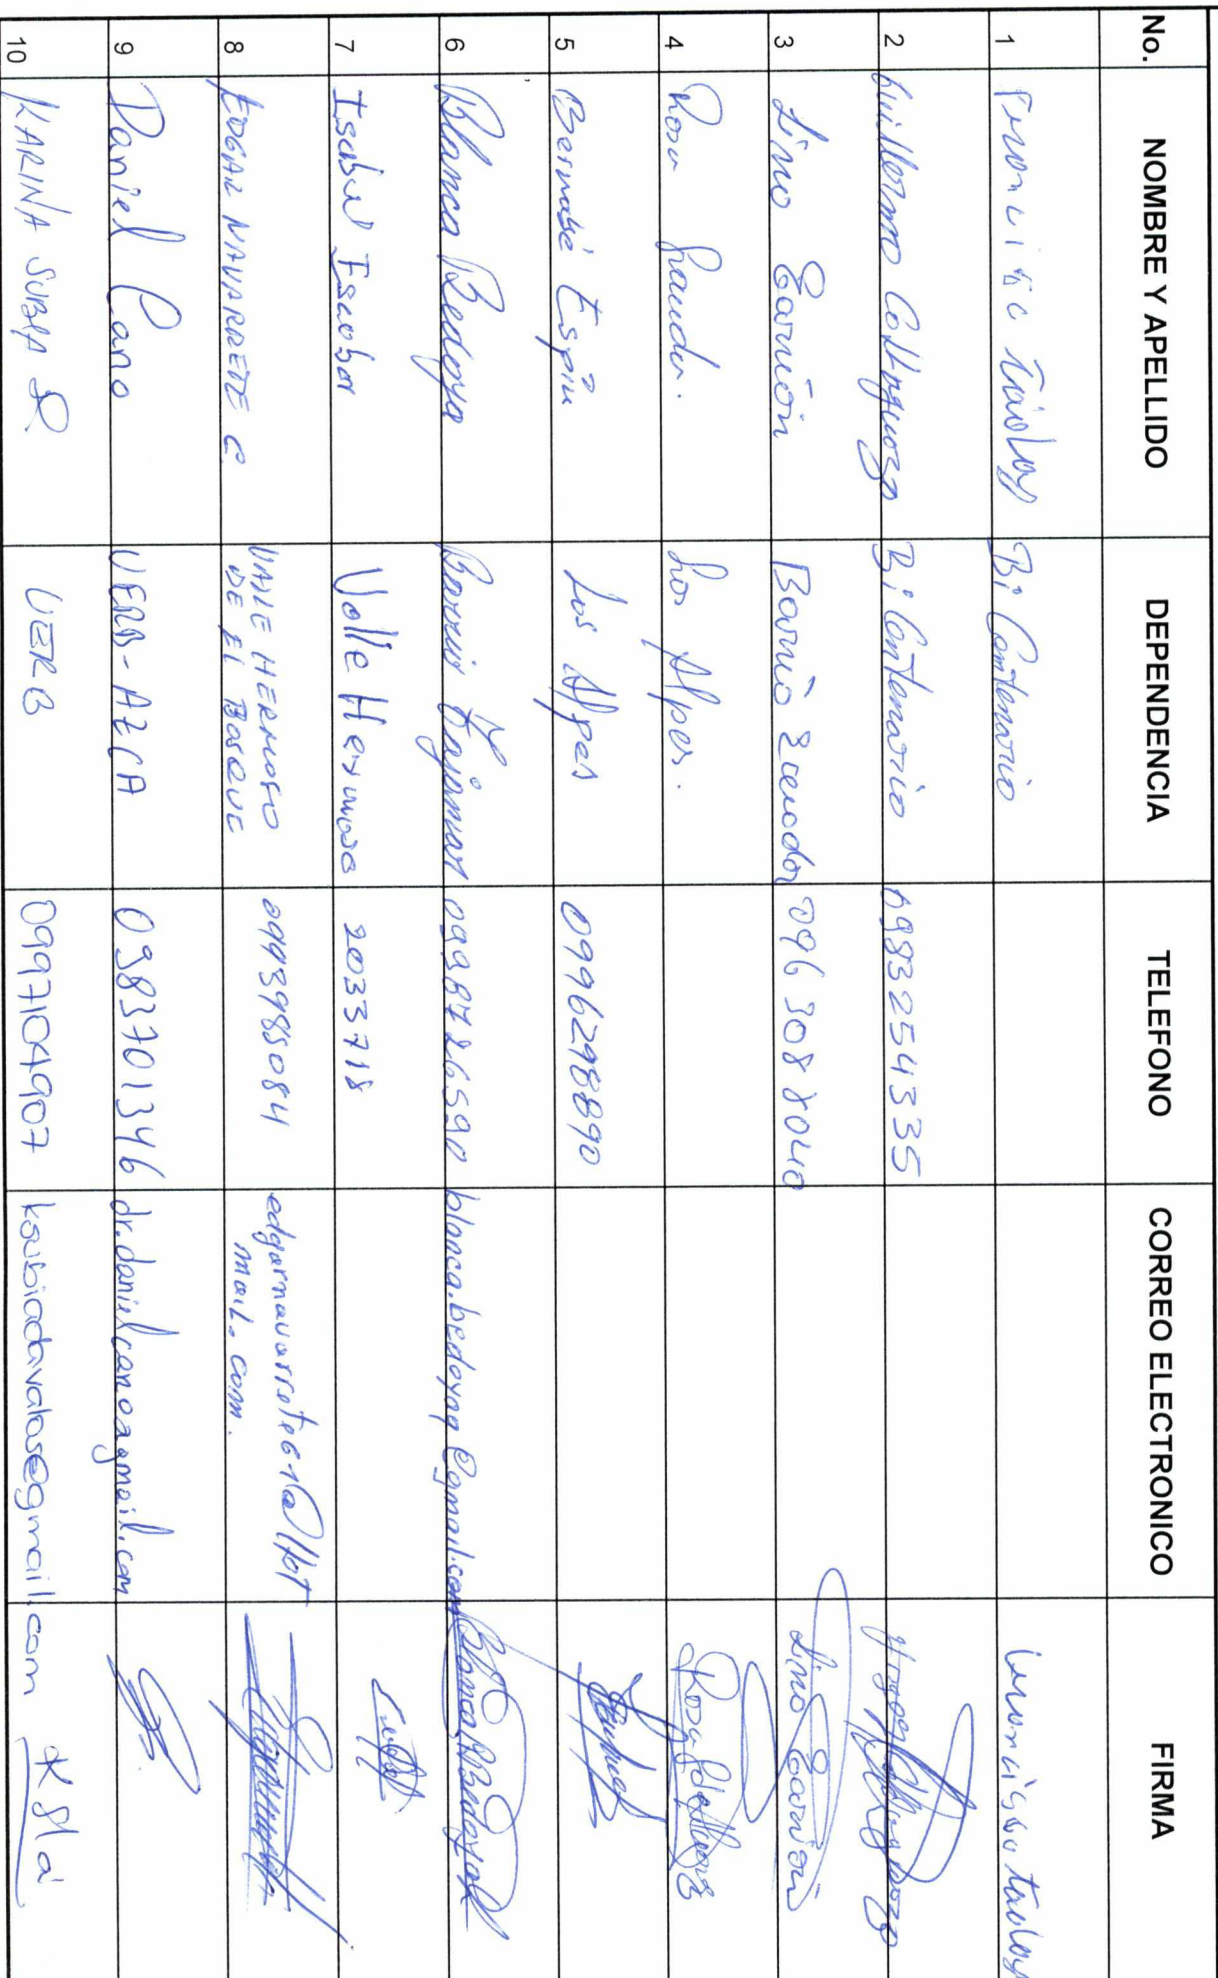 No. NOMBRE Y APELLIDO DEPENDENCIA TELEFONO CORREO ELECTRONICO FIRMA
1 Bi Centenario
2 Guillermo Collaguazo Bi Centenario 0983254335
3 Lino Carrión Barrio Ecuador 096 308 8040 Lino Carrión
4 Rosa Los Alpes.
5 Bernabé Espín Los Alpes 0996298890
6 Blanca Bedoya Barrio 0998728590 blanca.bedoyaa@gmail.com Blanca Bedoya
7 Isabel Escobar Valle Hermoso 2033718
8 EDGAR NAVARRETE C VALLE HERMOSO DE EL BOSQUE 0993988084 edgarnavarrete61@Hotmail.com.
9 Daniel Cano UERB-AZCA 0983701346 dr.danielcano@gmail.com
10 KARINA SUBIA D. UERB 0997104907 ksubiadavalos@gmail.com